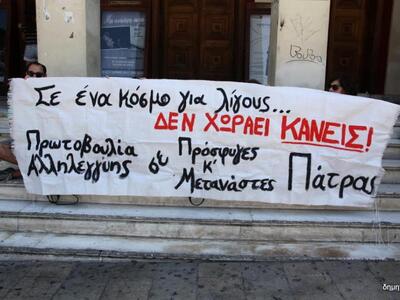 Σε ένα κόσμο για λίγους...
ΔΕΝ ΧΩΡΑΕΙ ΚΑΝΕΙΣ!
Πρωτοβουλία
Αλληλεγγύης σε Πρόσφυγες
κ' Μετανάστες Πάτρας
δημη